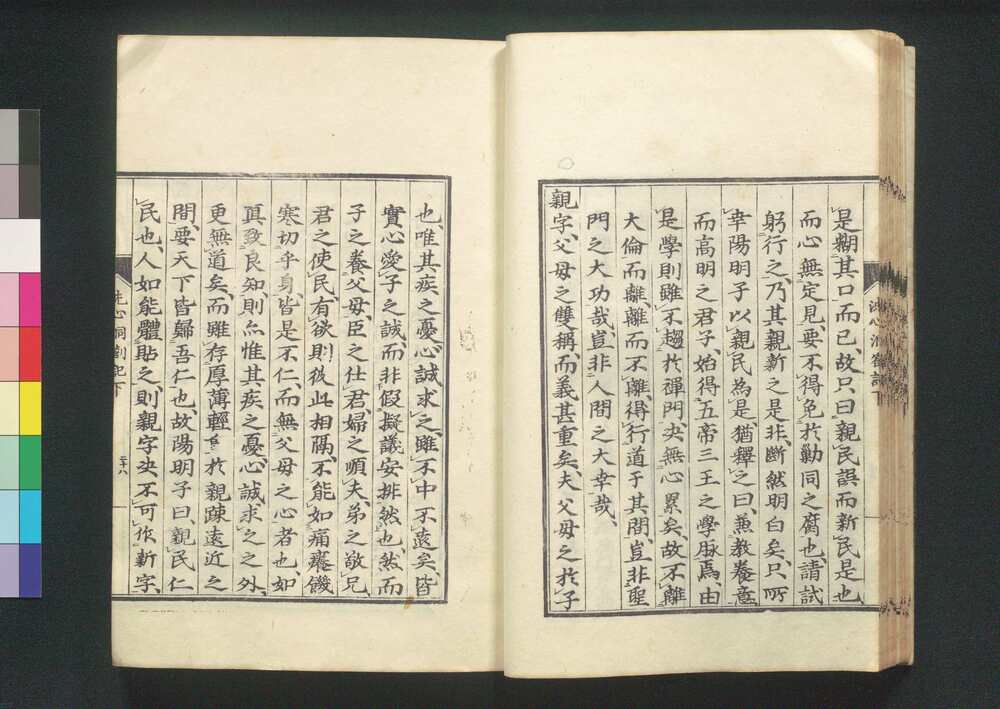 是糊其口而已、故只曰親民誤而新民是也、
而心無定見、要不得免於勦同之腐也、請試
躬行之、乃其親新之是非、断然明白矣、只所
幸陽明子以親民為是、猶釋之曰、兼教養意
而高明之君子、始得五帝三王之學脈焉、由
是學則雖不趨於禪門、夬無心累矣、故不離
大倫而離、離而不離、得行道于其間、豈非聖
門之大功哉、豈非人間之大幸哉、
親字、父母之雙稱、而義甚重矣、夫父母之於子
也、唯其疾之憂、心誠求之、雖不中不遠矣、皆
實心愛子之誠、而非假擬議安排然也、然而
子之養父母、臣之仕君、婦之順夫、弟之敬兄、
君之使民、有欲則彼此相隔、不能如痛癢饑
寒切乎身、皆是不仁、而無父母之心者也、如
真致良知則亦惟其疾之憂、心誠求之之外、
更無道矣、而雖存厚薄輕重於親疎遠近之
間、要天下皆歸吾仁也、故陽明子曰、親民仁
民也、人如能體貼之、則親字夬不可作新字、
洗心洞劄記下